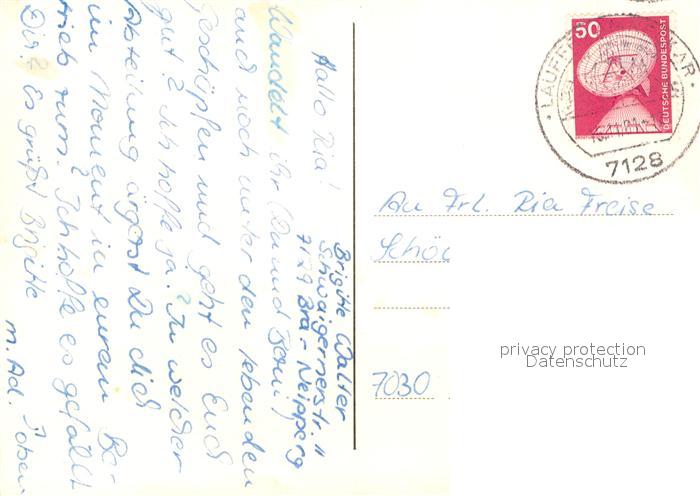 Hallo Ria!
Wandelt ihr (Du und Beni)
auch noch unter den lebenden
Geschöpfen und geht es Euch
gut? Ich hoffe ja. In welcher
Abteilung ärgerst Du dich
im Moment in eurem Be-
trieb rum? Ich hoffe es gefällt
Dir? Es grüßt Brigitte
m. Ad. oben
Brigitte Walter
Schwaigernerstr. 11
7129 Bra-Neipperg
50
DEUTSCHE BUNDESPOST
LAUFFEN
7128
An Frl. Ria Freise
Schö
7030
privacy protection
Datenschutz